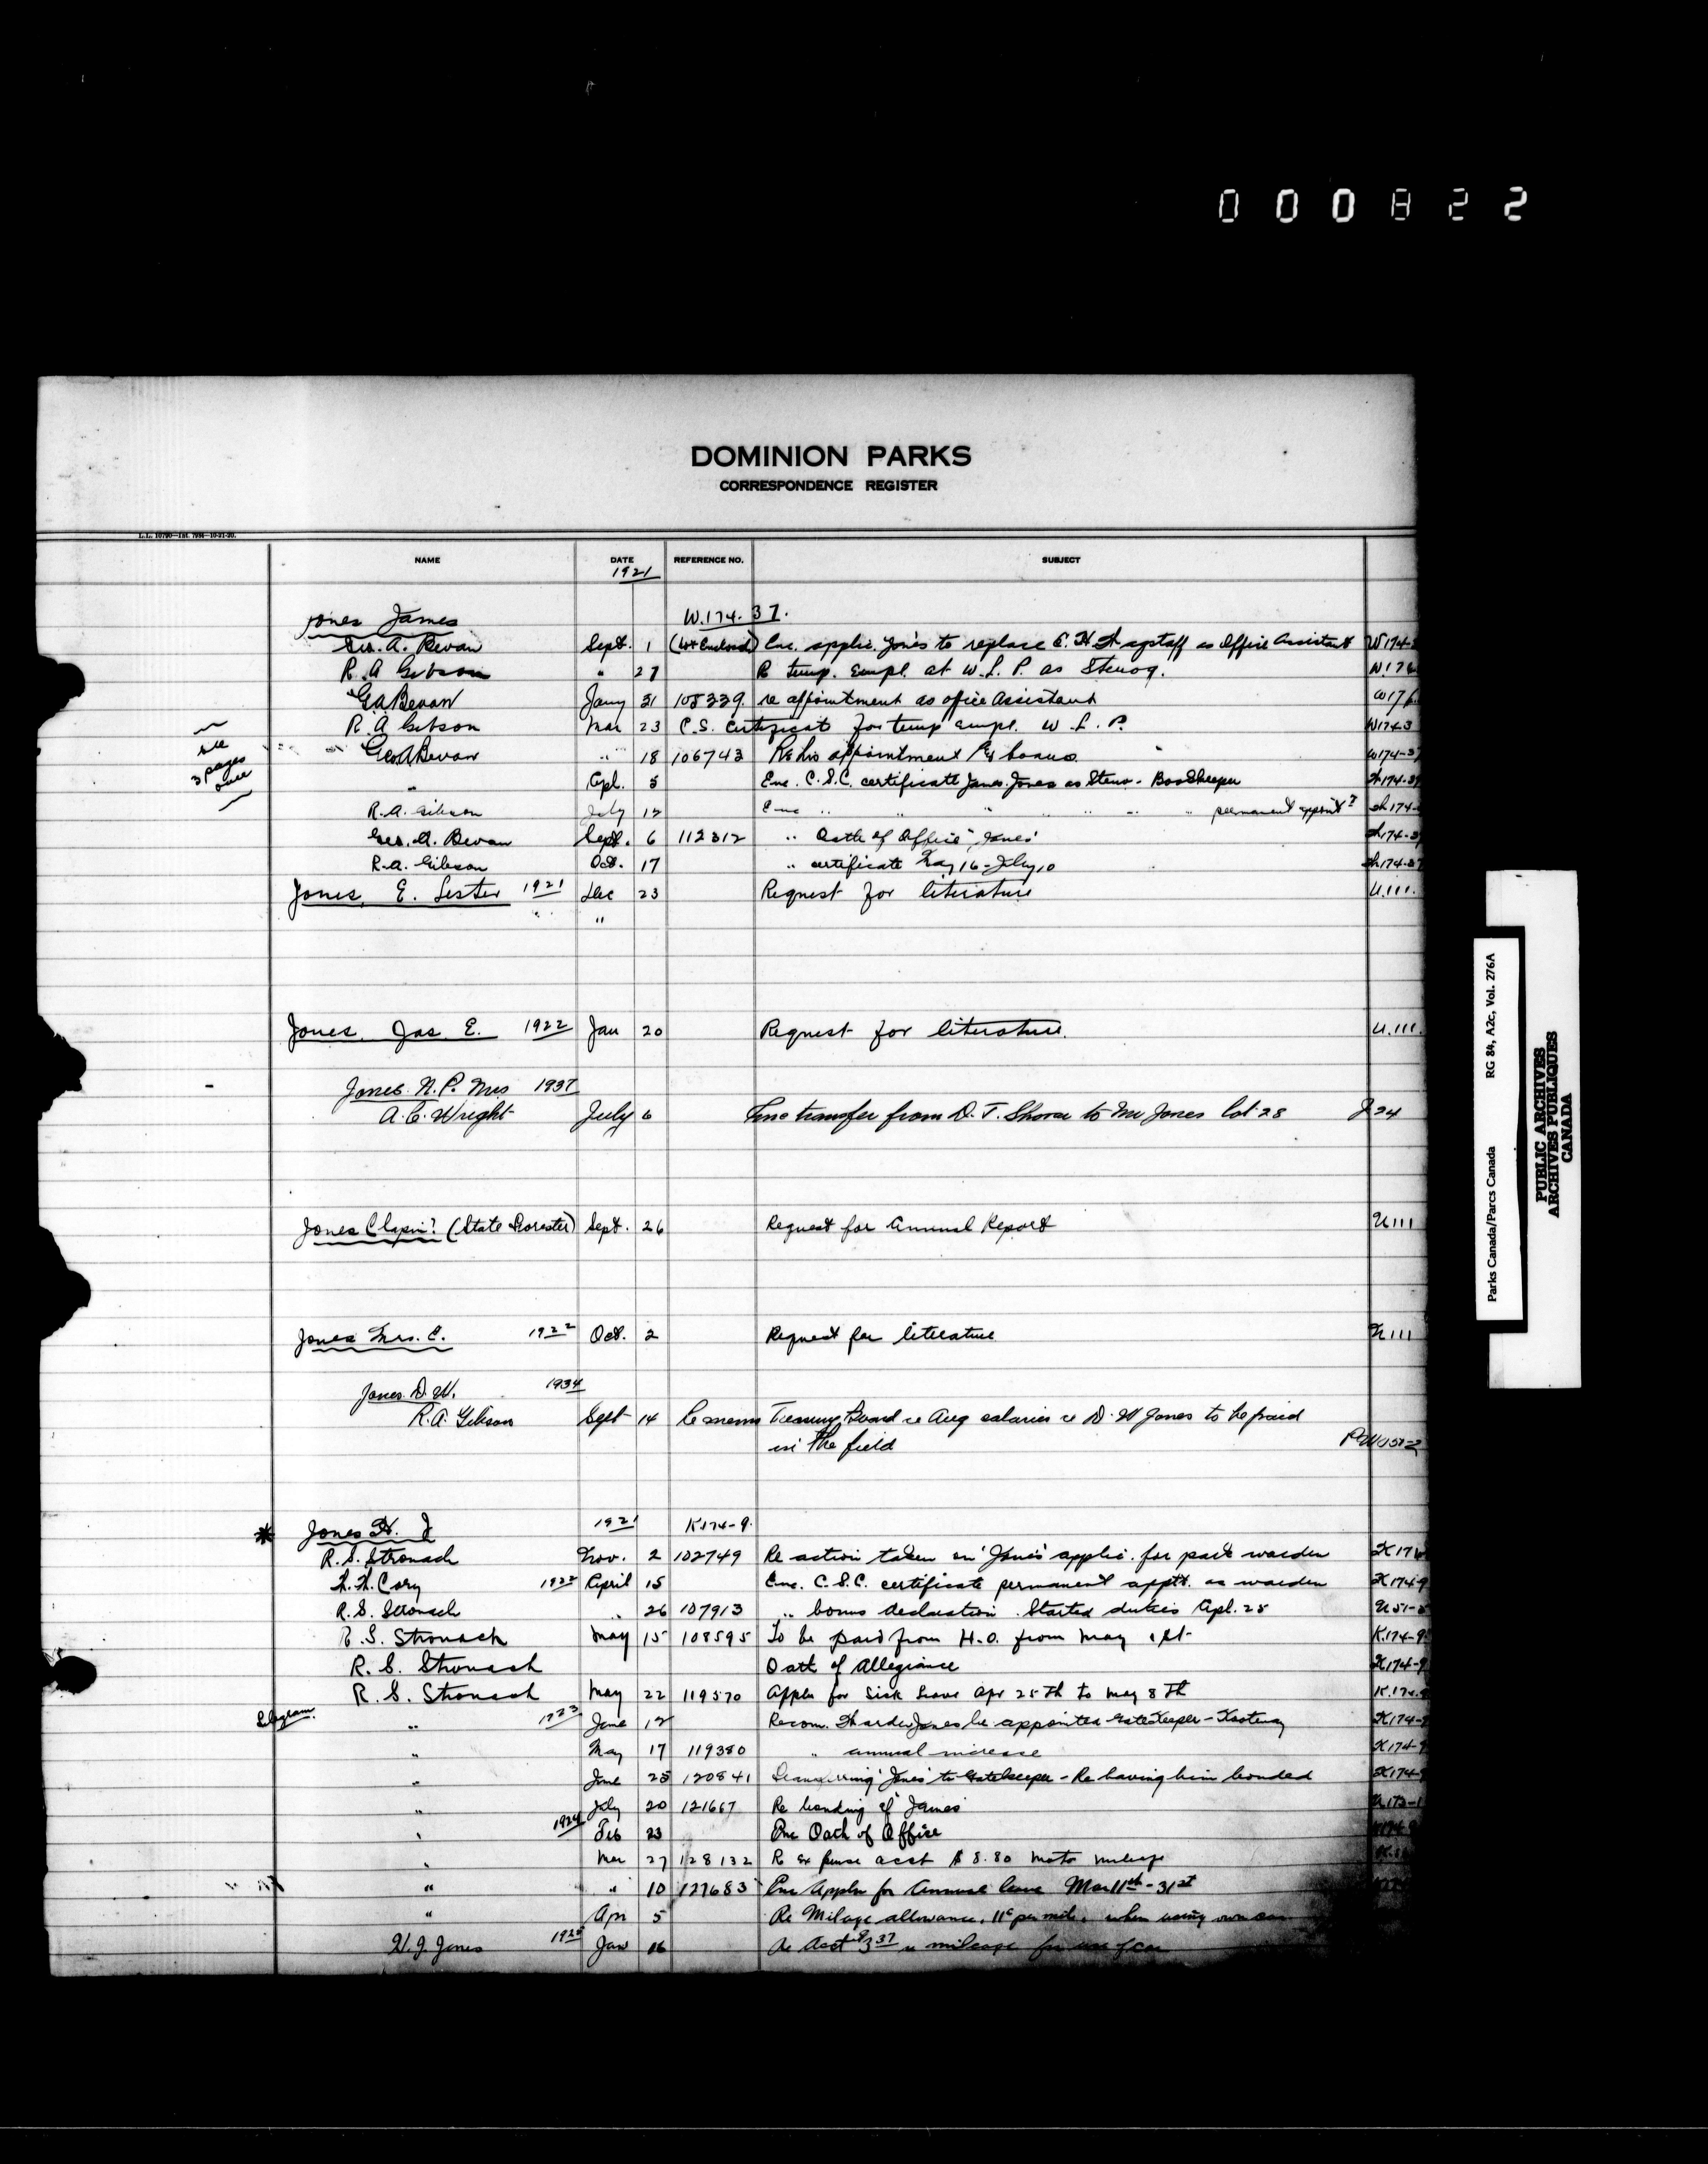 000822
DOMINION PARKS
CORRESPONDENCE REGISTER
L.L. 10790—Int. 7984—10-21-20.
NAME DATE REFERENCE NO. SUBJECT
1921
Jones James W.174.37.
Geo. A. Bevan Sept. 1 Enc. applic. Jones to replace E. H. as Office Assistant W174-3
R. A Gibson " 27 R temp. empl. at W. L. P. as Stenog. W.174
G.A. Bevan Jany 31 108339. re appointment as office Assistant W17
R. A Gibson Mar 23 C.S. Certificat for temp empl. W. L. P. W174.3
see 3 pages over
Geo A Bevan " 18 106743 Re his appointment & bonus. W174-37
" Apl. 5 Enc. C.S.C. certificate James Jones as Steno - Bookkeeper W174-37
R.A. Gibson July 12 Enc " " " " " permanent appoint W174-
Geo. A. Bevan Sept. 6 112312 " Oath of Office "Jones" W174-37
R.A. Gibson Oct. 17 " certificate May 16 - July 10 W174-37
Jones, E. Lester 1921 Dec 23 Request for literature U.111.
" "
Jones, Jas. E. 1922 Jan 20 Request for literature. U.111.
Jones N.P. Mrs 1937
A. C. Wright July 6 Enc transfer from D. T. to Mrs Jones lot 28 J24
Jones (State Forester) Sept. 26 Request for Annual Report U111
Jones Mrs. C. 1922 Oct. 2 Request for literature U111
Jones D.W. 1934
R.A. Gibson Sept 14 C memo Treasury Board re Aug salaries re D. W Jones to be paid
in the field
* Jones H. J 1921 K174-9.
R.S. Stronach Nov. 2 102749 Re action taken on 'Jones' applic. for park warden K174
Cory 1922 April 15 Enc. C.S.C. certificate permanent appt. as warden K174-9
R.S. Stronach " 26 107913 " bonus declaration. Started duties Apl. 25 U51-
R.S. Stronach May 15 108595 To be paid from H.O. from May 1st K.174-9
R.S. Stronach Oath of Allegiance K174-9
R.S. Stronach May 22 119570 Appln for Sick Leave Apr 25th to May 8th K.174.9
Telegram. " 1923 June 12 Recom. Warden Jones be appointed Gatekeeper - Kootenay K174-9
" May 17 119380 " annual increase K174-9
" June 25 120841 'Jones' to Gatekeeper - Re having him bonded K174-9
" July 20 121667 Re bonding of James
" 1924 Feb 23 Enc Oath of Office
" Mar 27 128132 Re expense acct $8.80 moto mileage
" " 10 127683 Enc Appln for Annual leave Mar 11th - 31st
" Apr 5 Re Milage allowance, 11c per mile, when using own car
H. J. Jones 1925 Jan 16 Re Acct re mileage for use of car
Parks Canada/Parcs Canada RG 84, A2c, Vol. 276A
PUBLIC ARCHIVES
ARCHIVES PUBLIQUES
CANADA